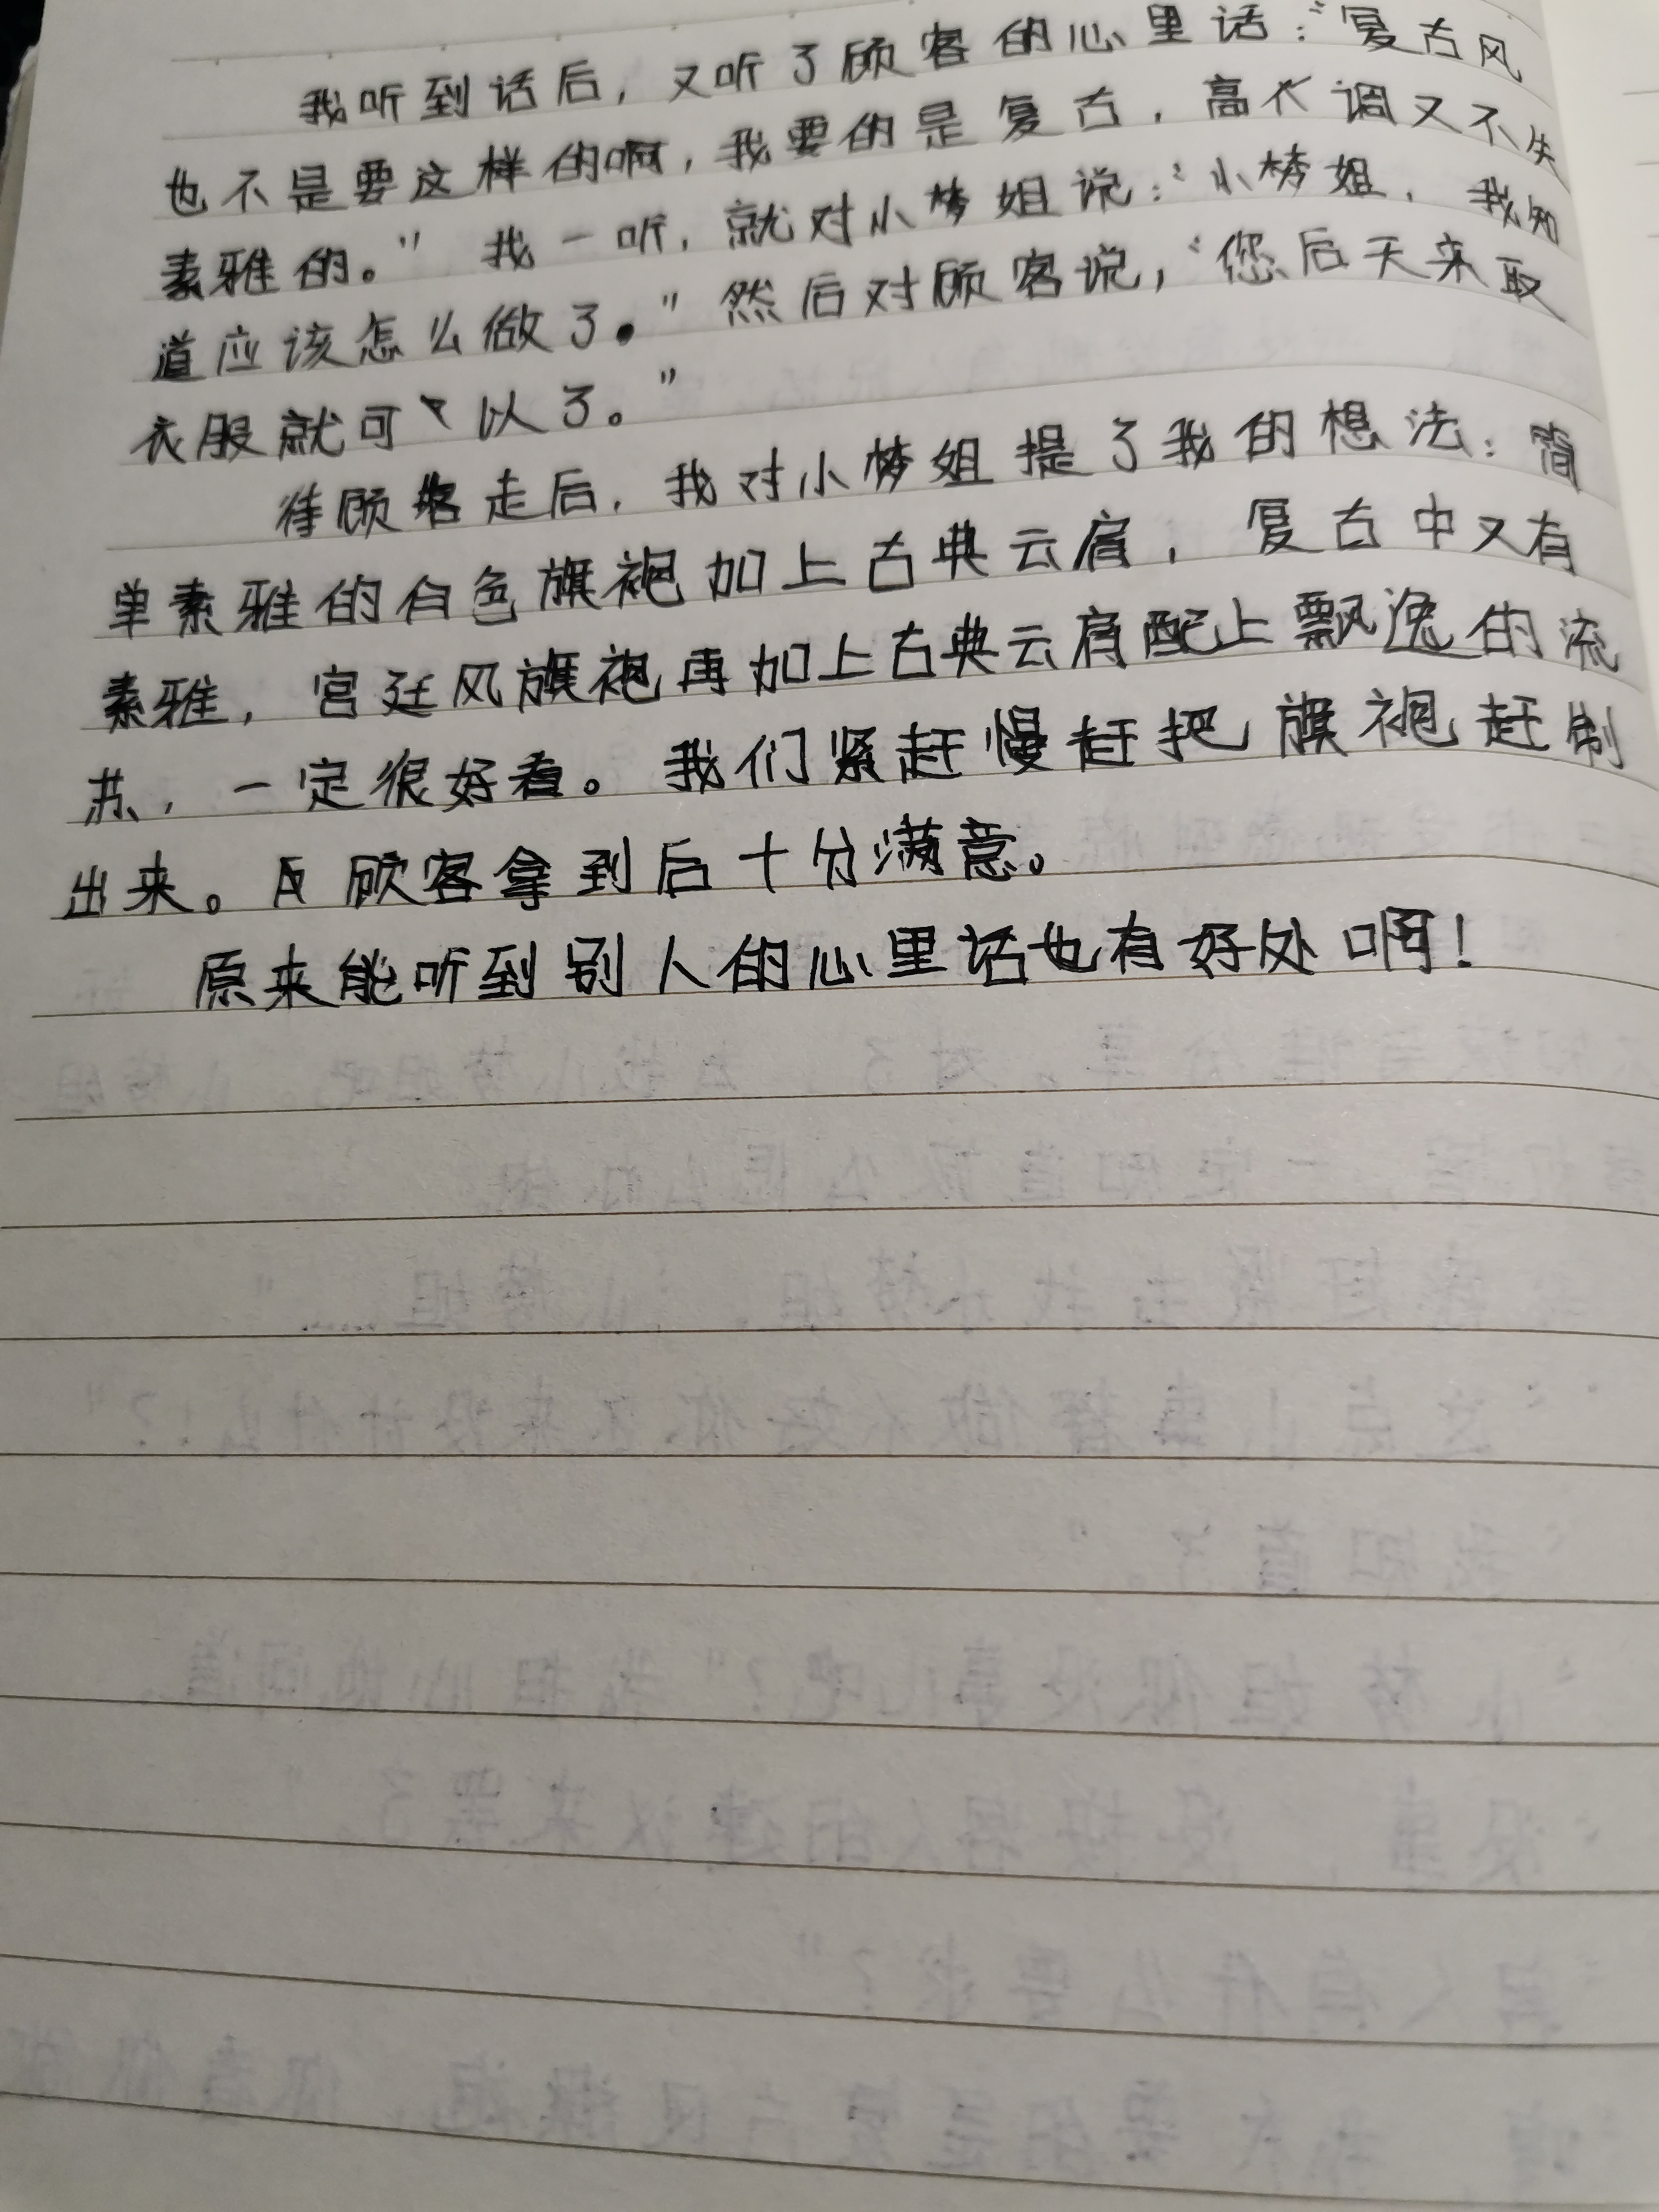 我听到话后，又听了顾客的心里话：“复古风
也不是要这样的啊，我要的是复古，高调又不失
素雅的。”我一听，就对小梦姐说：“小梦姐，我知
道应该怎么做了。”然后对顾客说，“您后天来取
衣服就可以了。”
待顾客走后，我对小梦姐提了我的想法：简
单素雅的白色旗袍加上古典云肩，复古中又有
素雅，宫廷风旗袍再加上古典云肩配上飘逸的流
苏，一定很好看。我们紧赶慢赶把旗袍赶制
出来。顾客拿到后十分满意。
原来能听到别人的心里话也有好处啊！